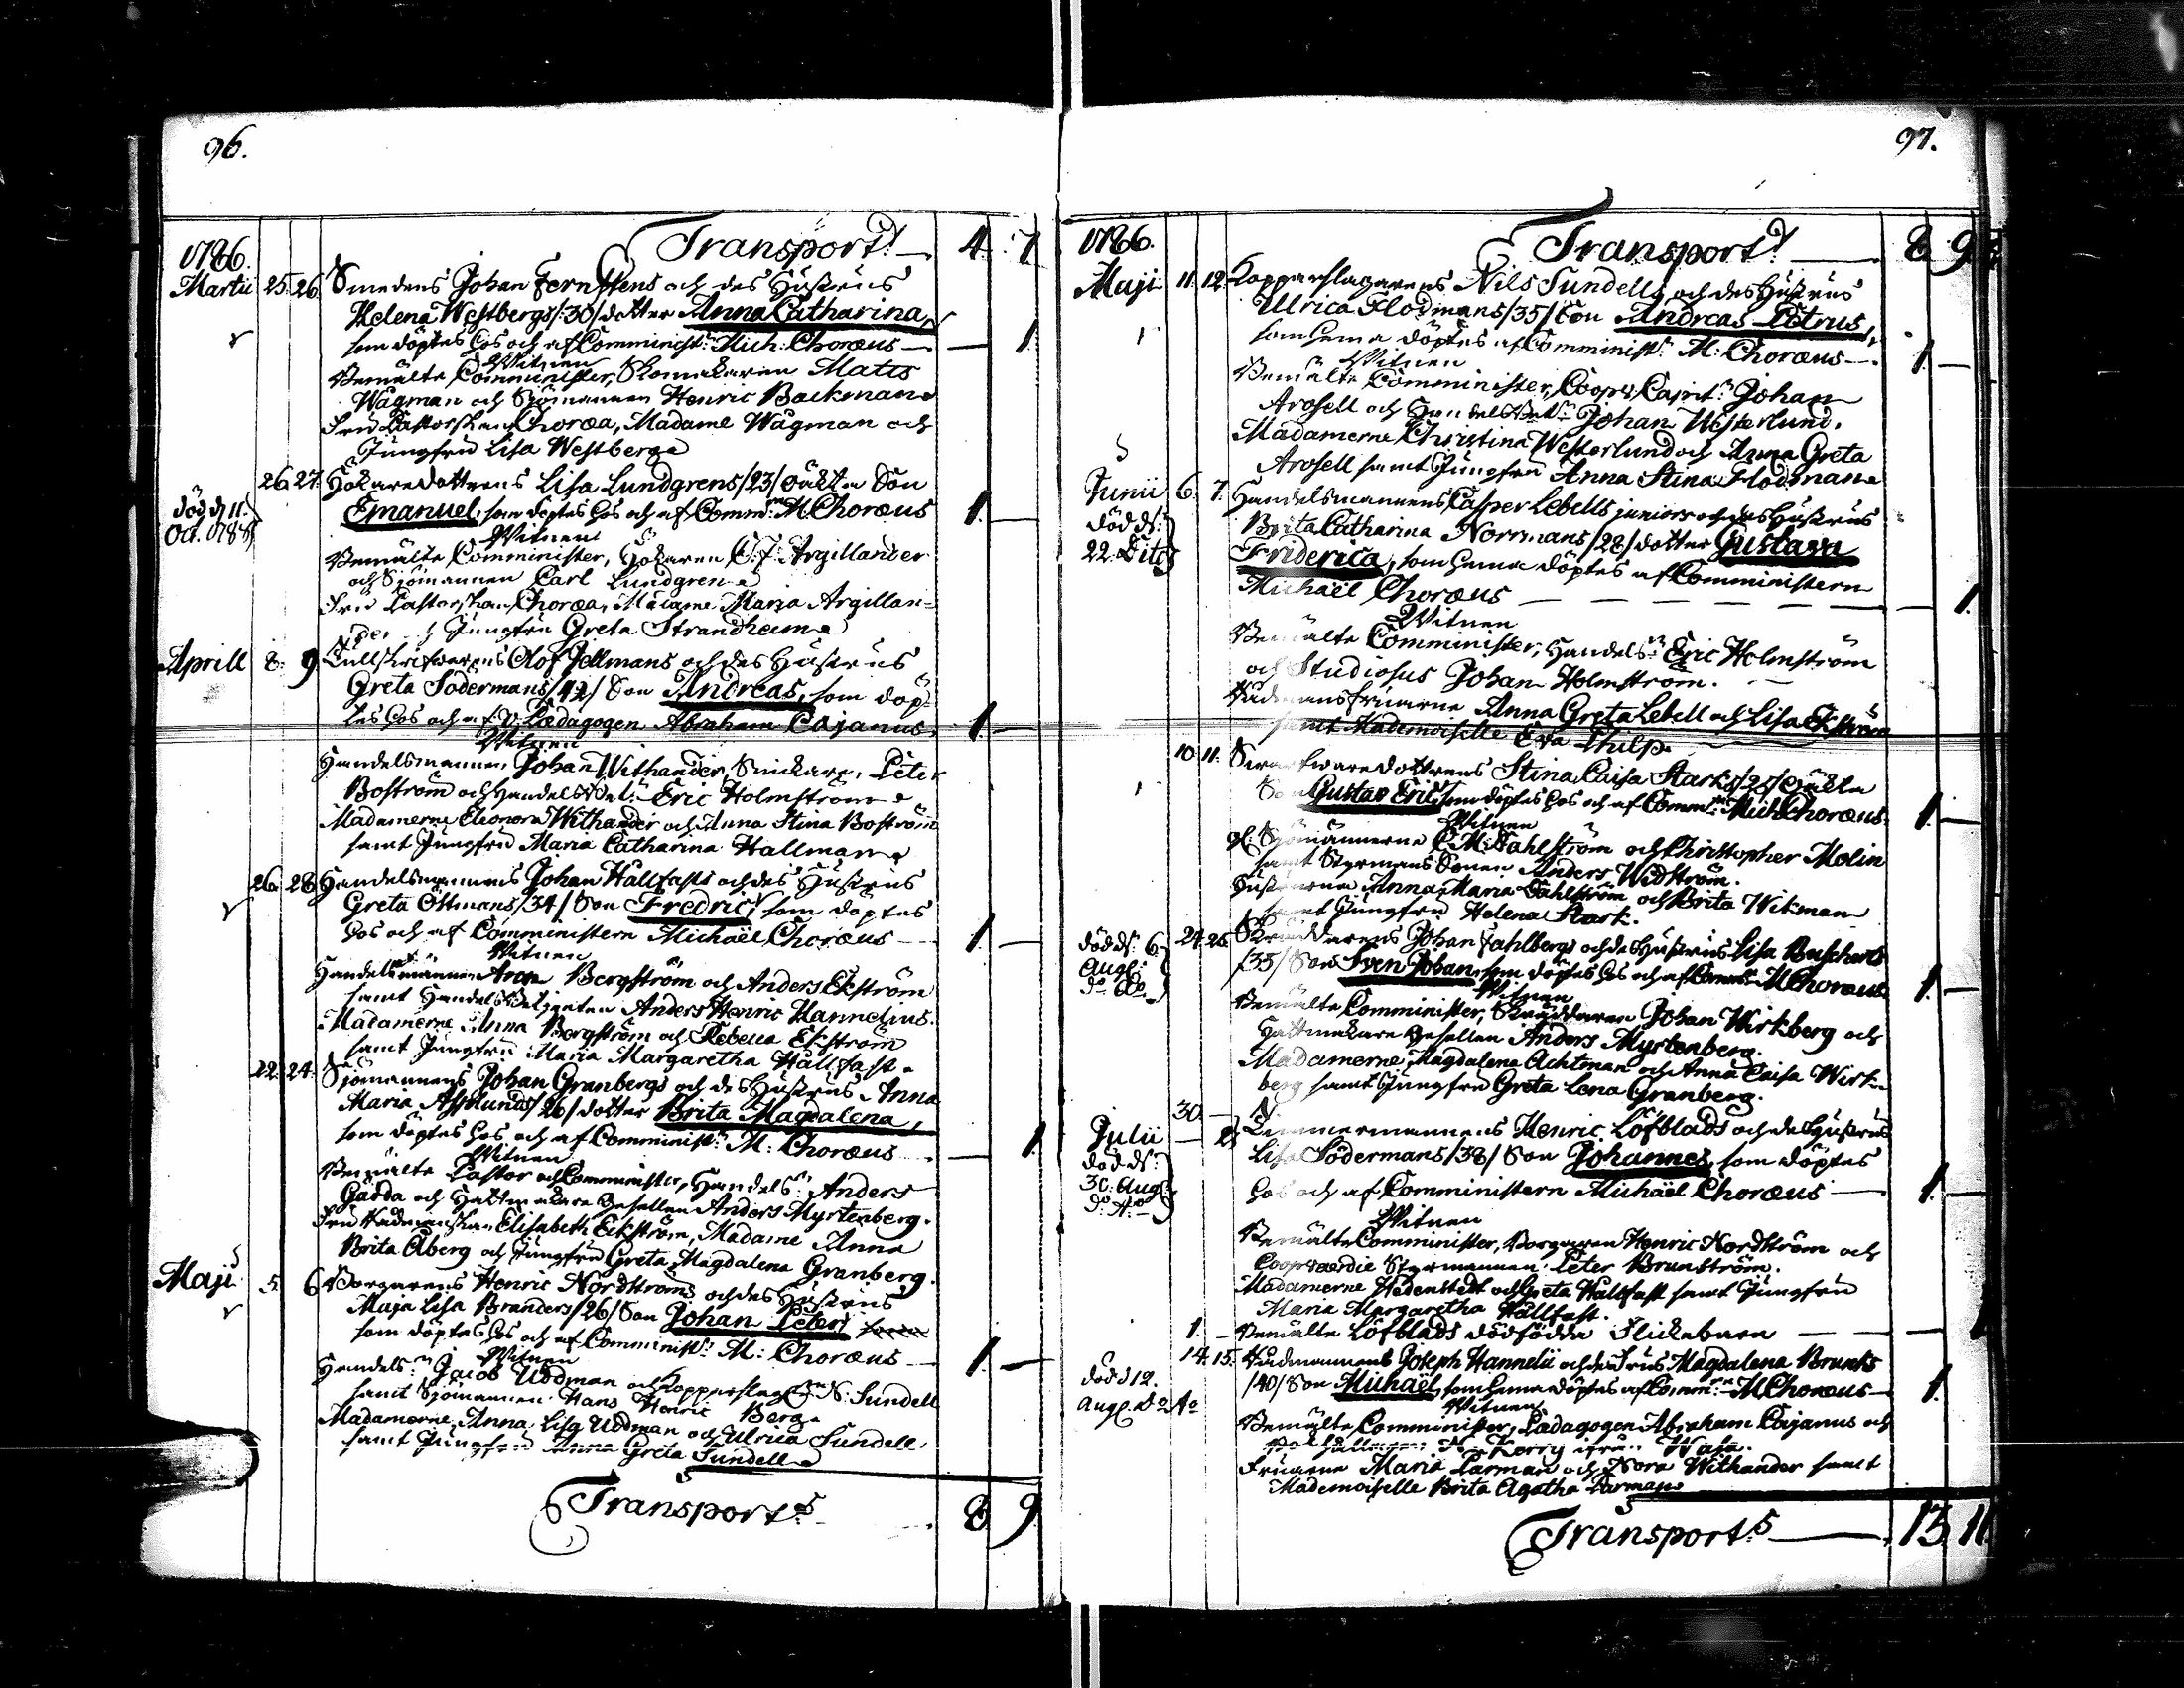 96.
Transport
4. 7
1786.
Martii 25. 26. Smedens Johan Fernstens och des Hustrus
Helena Westbergs /:30/ dotter Anna Catharina,
som döptes hos och af Comminist: Mich: Choræus — 1.
Witnen
Bemälte Comminister, Skomakaren Mats
Wågman och Sjömannen Henric Backman
Fru Pastorskan Choræa, Madame Wågman och
Jungfru Lisa Westberg
26. 27. Hökaredottrens Lisa Lundgrens /23/ oäkta Son
död d. 11.
Oct.
Emanuel, som döptes hos och af Comm: M. Choræus 1. —
Witnen
Bemälte Comminister, Hökaren C. J. Argillander
och Sjömannen Carl Lundgren
Fru Pastorskan Choræa, Madame Maria Argillan=
der och Jungfru Greta Strandheim
Aprill 8. 9. Tullskrifwarens Olof Jellmans och des Hustrus
Greta Södermans /42/ Son Andreas, som döp=
tes hos och af V. Pædagogen Abraham Cajanus 1.
Witnen
Handelsmannen Johan Withander, Snickare, Peter
Boström och Handels Bet: Eric Holmström
Madamerne Eleonora Withander och Anna Stina Boström
samt Jungfru Maria Catharina Hallman
26. 28. Handelsmannens Johan Hällfasts och des Hustrus
Greta Östmans /34/ Son Fredric, som döptes
hos och af Comministern Michaël Choræus — 1. —
Witnen
Handelsmännen Aron Bergström och Anders Ekström
samt Handels Betjenten Anders Henric Hannelius.
Madamerne Anna Bergström och Rebecca Ekström
samt Jungfru Maria Margaretha Hällfast
22. 24. Sjömannens Johan Granbergs och des Hustrus Anna
Maria Asplunds /26/ dotter Brita Magdalena,
som döptes hos och af Comminist: M: Choræus — 1.
Witnen
Bemälte Pastor och Comminister, Handels: Anders
Gärda och Hattmakare Gesellen Anders Myrtenberg.
Fru Rådmanskan Elisabeth Eckström, Madame Anna
Brita Åberg och Jungfru Greta Magdalena Granberg.
Maji 5. 6. Borgarens Henric Nordströms och des Hustrus
Maja Lisa Branders /26/ Son Johan Peter,
som döptes hos och af Comminist: M: Choræus — 1. —
Witnen
Handels: Jacob Uddman och Kopparslag: N: Sundell
samt Sjömannen Hans Henric Berg
Madamerne Anna Lisa Uddman och Ulrica Sundell
samt Jungfru Greta Sundell
Transport 8 9
97.
Transport
8. 9
1786.
Maji 11. 12. Kopparslagarens Nils Sundells och des Hustrus
Ulrica Flodmans /35/ Son Andreas Petrus,
som hema döptes af Comminist: M: Choræus — 1. —
Witnen
Bemälte Comminister, Coopv: Capit: Johan
Arosell och Handels Bet: Johan Westerlund.
Madamerne Christina Westerlund och Anna Greta
Arosell samt Jungfru Anna Stina Flodman
Junii 6. 7. Handelsmannens Casper Lebells juniors och des Hustrus
död ds:
22. Dito
Brita Catharina Norrmans /28/ dotter Gustava
Friderica, som hema döptes af Comministern
Michaël Choræus — 1.
Witnen
Bemälte Comminister, Handels: Eric Holmström
och Studiosus Johan Holmström.
Rådmansfruarne Anna Greta Lebell och Lisa Ekström
samt Mademoiselle Eva Philp
10. 11. Swarfwaredottrens Stina Caisa Starks /25/ oäkta
Son Gustav Eric, som döptes hos och af Comm: Mich: Choræus 1.
Witnen
Sjömännerne C. M: Dahlström och Christopher Molin
samt Styrmans Sonen Anders Widström.
Hustrurna Anna Maria Dahlström och Brita Wikman
samt Jungfru Helena Stark.
24. 25. Skräddarens Johan Fahlbergs och des Hustrus Lisa
död ds: 6.
Aug:
/35/ Son Sven Johan, som döptes hos och af Comm: M Choræus 1. —
Witnen
Bemälte Comminister, Skräddaren Johan Wirkberg och
Hattmakare Gesellen Anders Myrtenberg.
Madamerne Magdalena Achtman och Anna Caisa Wirk=
berg samt Jungfru Greta Lena Granberg.
30. —
Julii — 2. Timmermannens Henric Löfblads och des Hustrus
död ds:
30. Aug:
Lisa Södermans /38/ Son Johannes, som döptes
hos och af Comministern Michaël Choræus — 1. —
Witnen
Bemälte Comminister, Borgaren Henric Nordström och
Coopvaerdie Styrmannen Peter Brunström.
Madamerne Hedenstedt och Greta Hällfast samt Jungfru
Maria Margaretha Hällfast.
1. — Bemälte Löfblads dödfödda Flickebarn — — 1
14. 15. Rådmannens Joseph Hannelii och des Frus Magdalena Brunks
död d 12.
Aug: Do Ao
/40/ Son Michaël, som hema döptes af Comm: M Choræus 1.
Witnen
Bemälte Comminister, Pædagogen Abraham Cajanus och
Kerry ifrån Wasa.
Fruarne Maria Carman och Nora Withander samt
Mademoiselle Brita Agatha Carman
Transport — 13 11